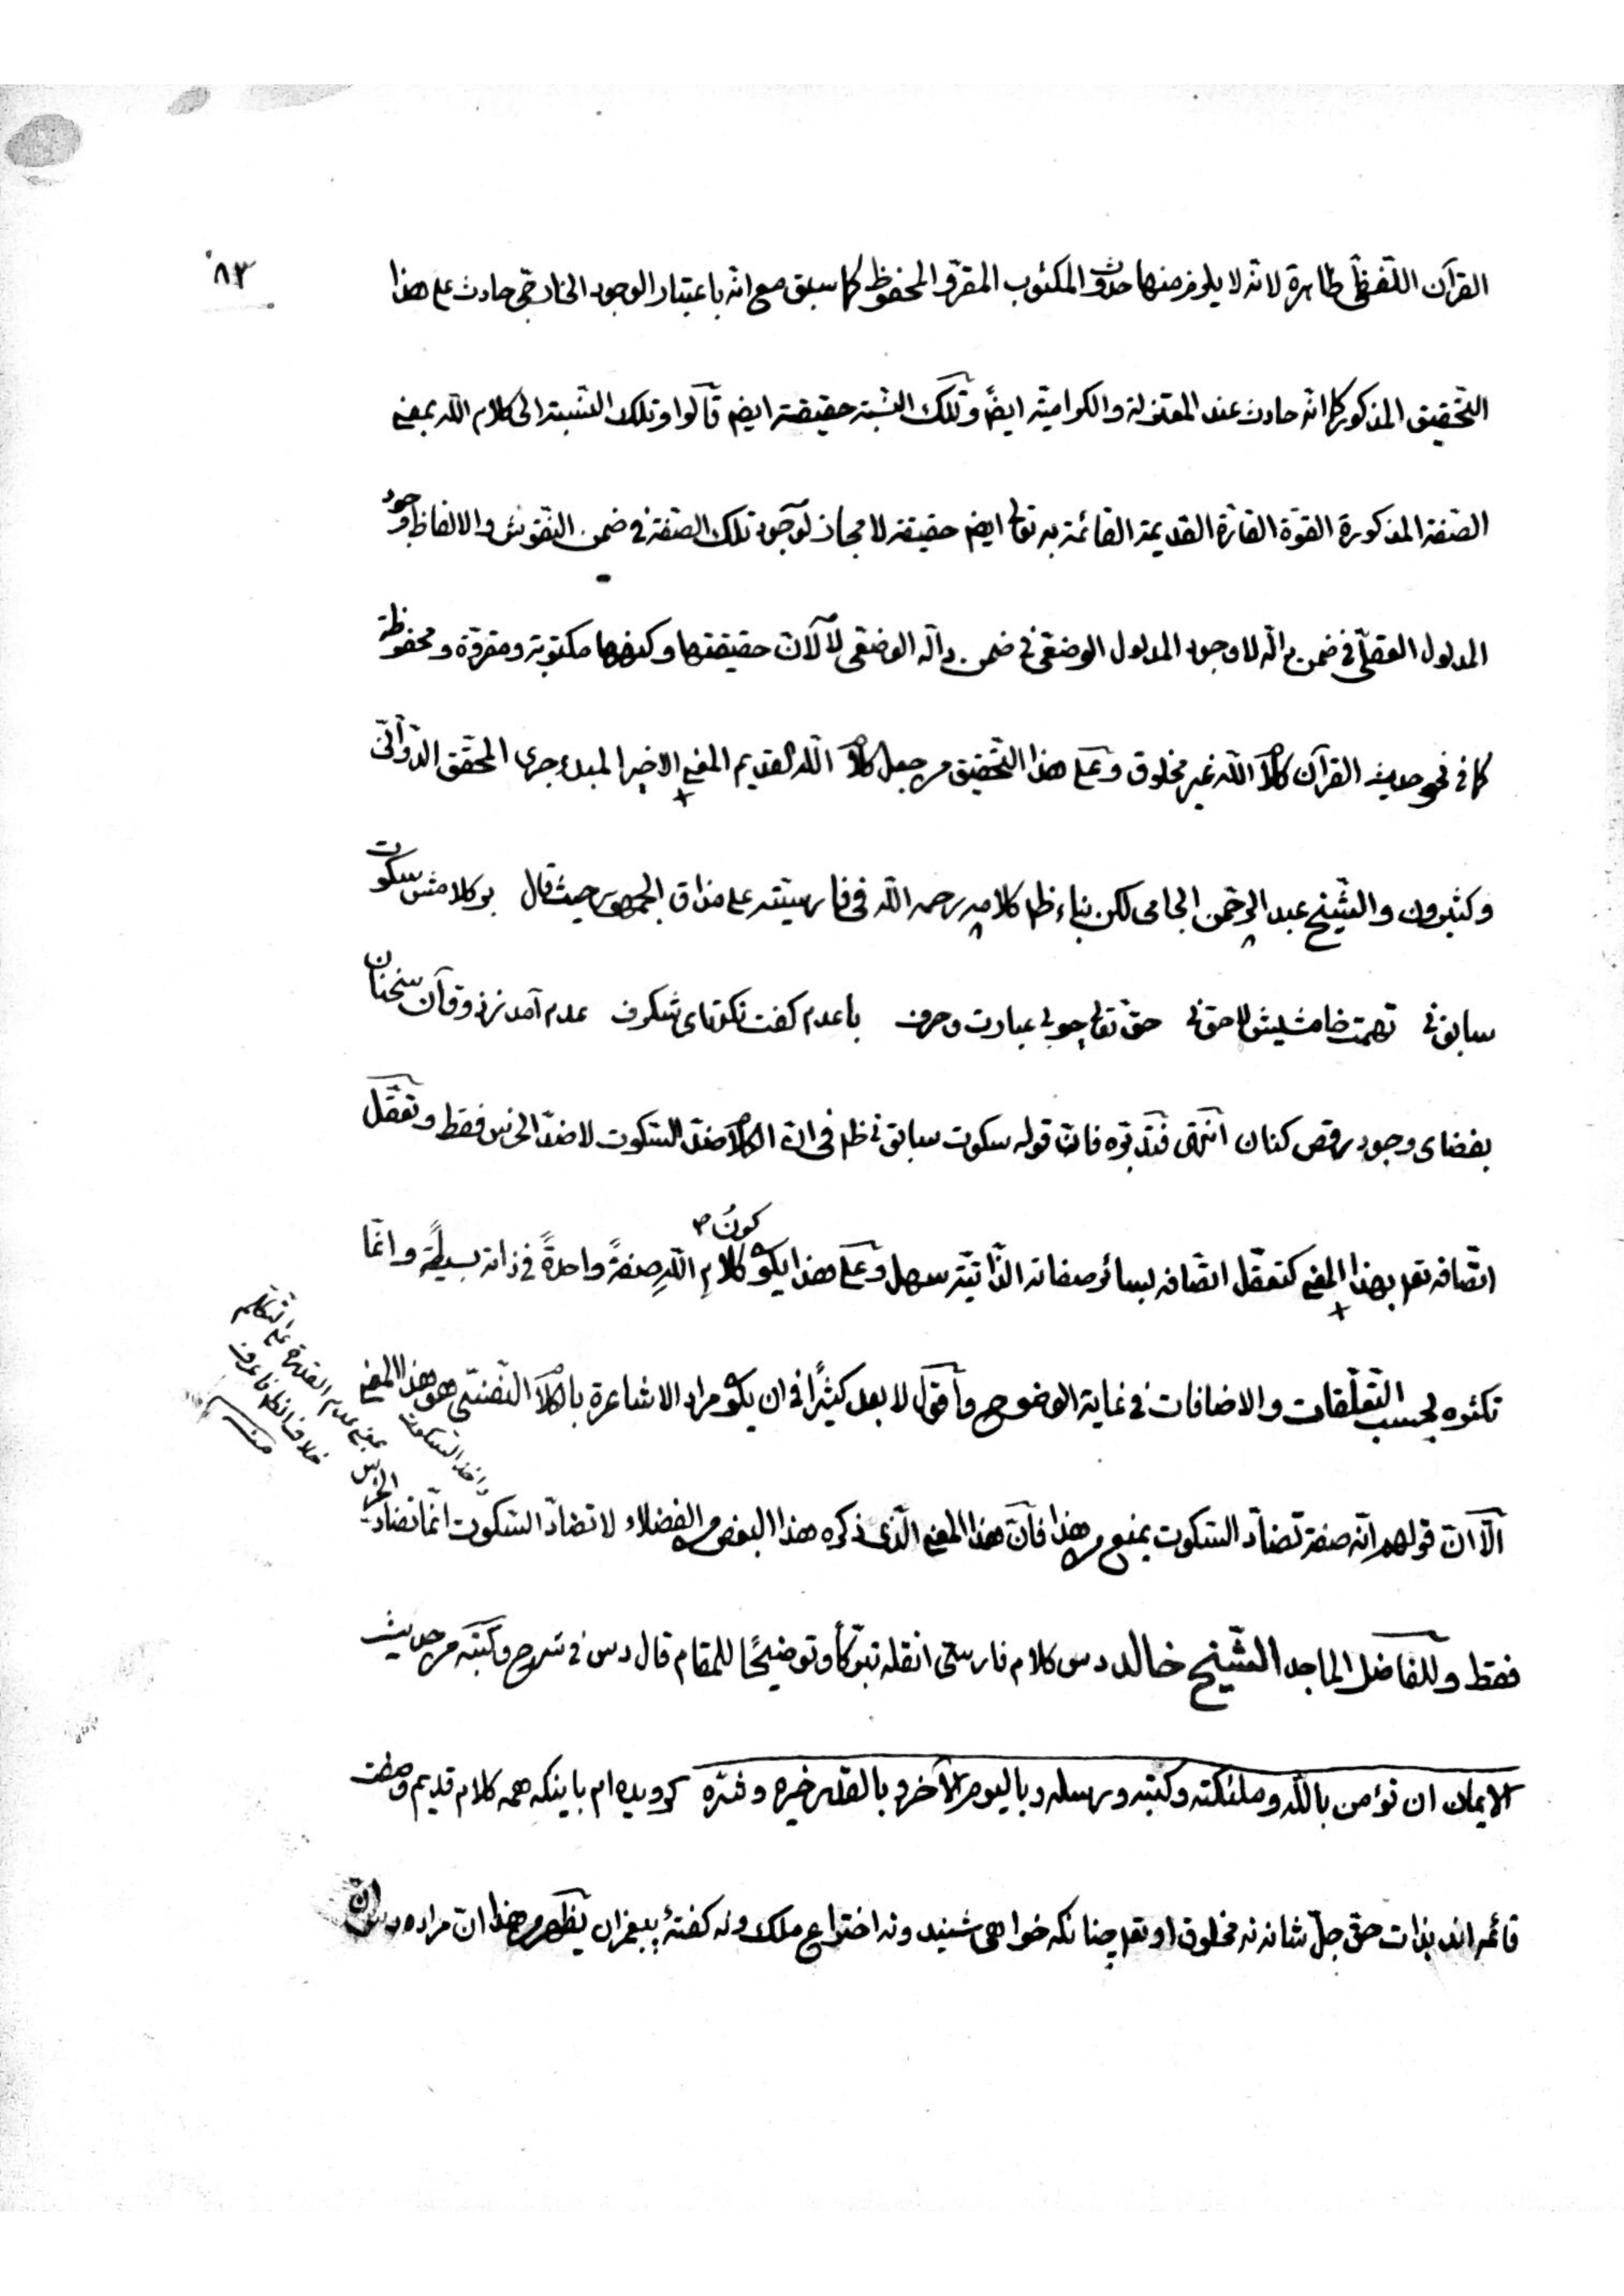 ٨٣
القرآن اللّفظيّ ظاهرة لانّه لا يلزم منها حدوث المكتوب المقرّو المحفوظ كما سبق مع انّه باعتبار الوجود الخارجيّ حادث على هذا
التّحقيق المذكور كما انّه حادث عند المعتزلة والكراميّة ايضًا وتلك النّسبة حقيقة ايضم قالوا وتلك النّسبة الى كلام اللّه بمعنى
الصّفة المذكورة القوّة القارّة القديمة القائمة به تعالى ايضم حقيقة لا مجاز لوجود تلك الصّفة في ضمن النّقوش والالفاظ وجود
المدلول العقليّ في ضمن دالّه لا وجود المدلول الوضعيّ في ضمن دالّه الوضعيّ لا لانّ حقيقتها وكنهها مكتوبة ومقروّة ومحفوظة
كما في نحو حديث القرآن كلام اللّه غير مخلوق وعلى هذا التّحقيق من جعل كلام اللّه القديم المعنى الاخير المبدء جرى المحقّق الدّوّانيّ
وكثيرون والشّيخ عبد الرّحمن الجامي لكن بناء ظاهر كلامه رحمه اللّه في فارسيّته على مذاق الجمهور حيث قال بو كلامش سكوت
سابق نى تهمت خامشيش لاحق نى حق تعالى چو بى عبارت وحرف با عدم كفت نكتهاى شكرف عدم آمد ز ذوق آن سخنان
بفضاى وجود رقص كنان انتهى فتدبّره فانّ قوله سكوت سابق نى ظاهر في انّ الكلام ضدّ السّكوت لا ضدّ الخرس فقط وتعقّل
اتّصافه تعالى بهذا المعنى كتعقّل اتّصافه بسائر صفاته الذّاتيّة سهل وعلى هذا يكون كونُ كلامِ اللّهِ صفةً واحدةً في ذاته بسيطةً وانّما
تكثّره بحسب التّعلّقات والاضافات في غاية الوضوح وأقول لا بعد كثيرًا في ان يكون مراد الاشاعرة بالكلام النّفسيّ هو هذا المعنى
الّا انّ قولهم انّه صفة تضادّ السّكوت يمنع من هذا فانّ هذا المعنى الّذى ذكره هذا البعض من الفضلاء لا تضادّ السّكوت انّما تضادّ الخرس
فقط وللفاضل الماجد الشّيخ خالد دس كلام فارسىّ انقله تبرّكًا وتوضيحًا للمقام قال دس في شرح وكتبه من حديث
الايمان ان تؤمن باللّه وملئكته وكتبه ورسله وباليوم الآخر وبالقدر خيره وشرّه كرويده ام باينكه همه كلام قديم وصفت
قائمه اند بذات حق جلّ شانه نه مخلوق او تعالى چنانكه خواهى شنيد ونه اختراع ملك ونه كفتهٔ پيغمبران يظهر من هذا انّ مراده دس انّ
واخذ السّكوت
بمعنى عدم القدرة على التّكلّم
خلاف الظّ ما عرف
منه